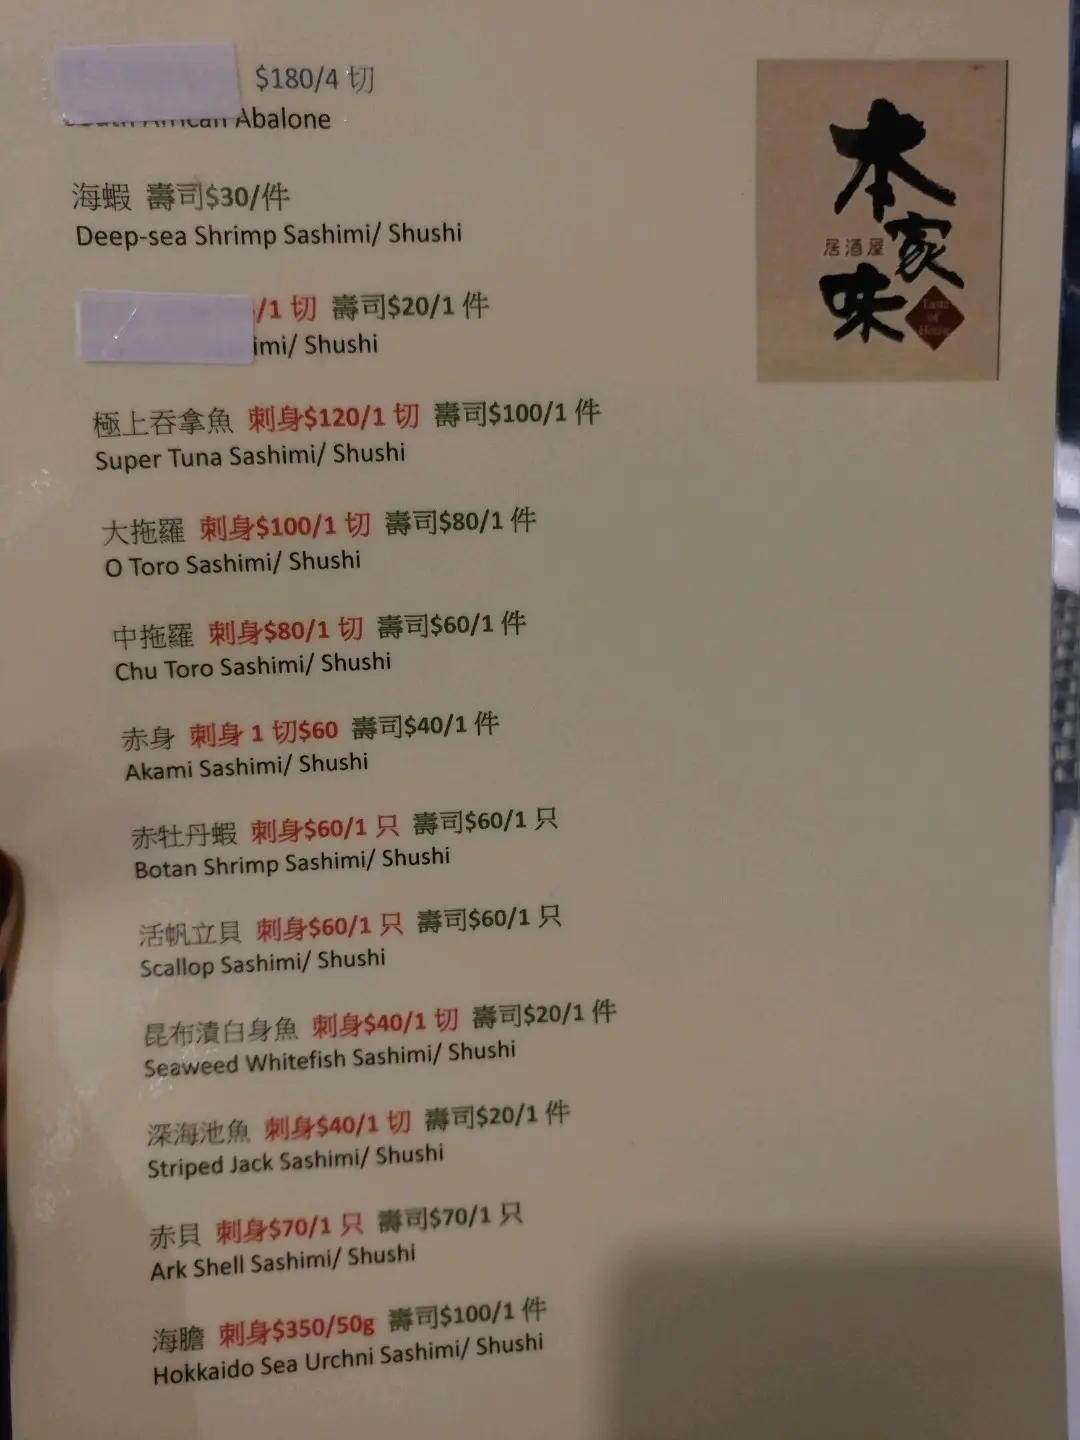 $180/4 切
South African Abalone
海蝦 壽司$30/件
Deep-sea Shrimp Sashimi/ Shushi
/1 切 壽司$20/1 件
imi/ Shushi
極上吞拿魚 刺身$120/1 切 壽司$100/1 件
Super Tuna Sashimi/ Shushi
大拖羅 刺身$100/1 切 壽司$80/1 件
O Toro Sashimi/ Shushi
中拖羅 刺身$80/1 切 壽司$60/1 件
Chu Toro Sashimi/ Shushi
赤身 刺身 1 切$60 壽司$40/1 件
Akami Sashimi/ Shushi
赤牡丹蝦 刺身$60/1 只 壽司$60/1 只
Botan Shrimp Sashimi/ Shushi
活帆立貝 刺身$60/1 只 壽司$60/1 只
Scallop Sashimi/ Shushi
昆布漬白身魚 刺身$40/1 切 壽司$20/1 件
Seaweed Whitefish Sashimi/ Shushi
深海池魚 刺身$40/1 切 壽司$20/1 件
Striped Jack Sashimi/ Shushi
赤貝 刺身$70/1 只 壽司$70/1 只
Ark Shell Sashimi/ Shushi
海膽 刺身$350/50g 壽司$100/1 件
Hokkaido Sea Urchni Sashimi/ Shushi
本家味
居酒屋
Taste
of
House